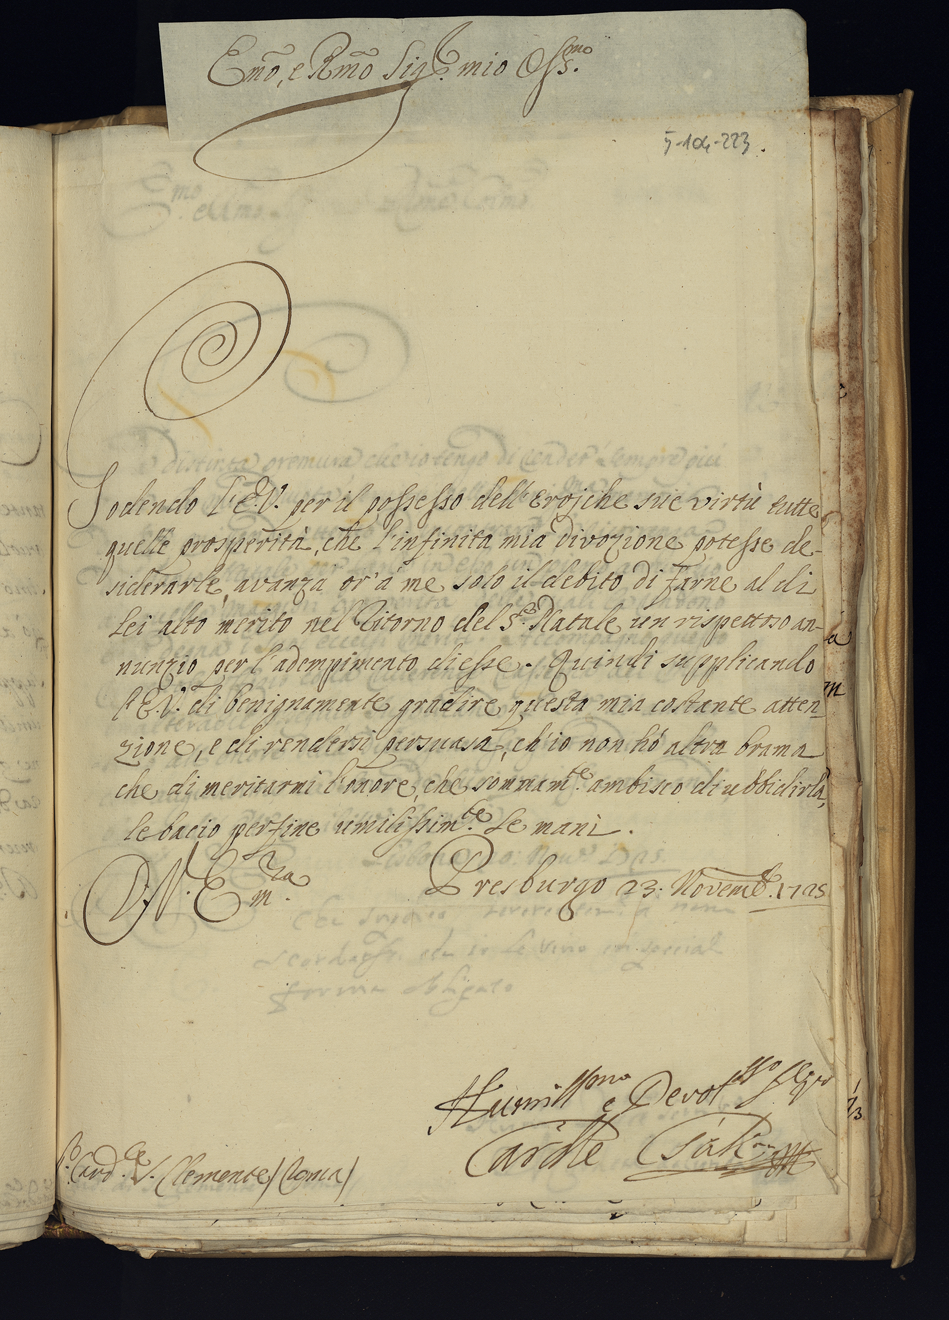 Emo, e Rmo Sigr. mio Ossmo.
5-104-223.
Godendo l'E.V. per il possesso dell'Eroiche sue virtù tutte
quelle prosperità, che l'infinita mia divozione potesse de-
siderarle, avanza or' à me solo il debito di farne al di
Lei alto merito nel ritorno del S.º Natale un rispettoso an-
nunzio per l'adempimento di esse. Quindi supplicando
l'E.V. di benignamente gradire questa mia costante atten-
zione, e di rendersi persuasa, ch'io non hò altra brama
che di meritarmi l'onore, che sommamte. ambisco di ubbidirla,
le bacio perfine umilissimte. le mani.
D. V. Emza.
Presburgo 23. Novemb. 1725
Humillmo e Devotsso
Card. S. Clemente / Roma /